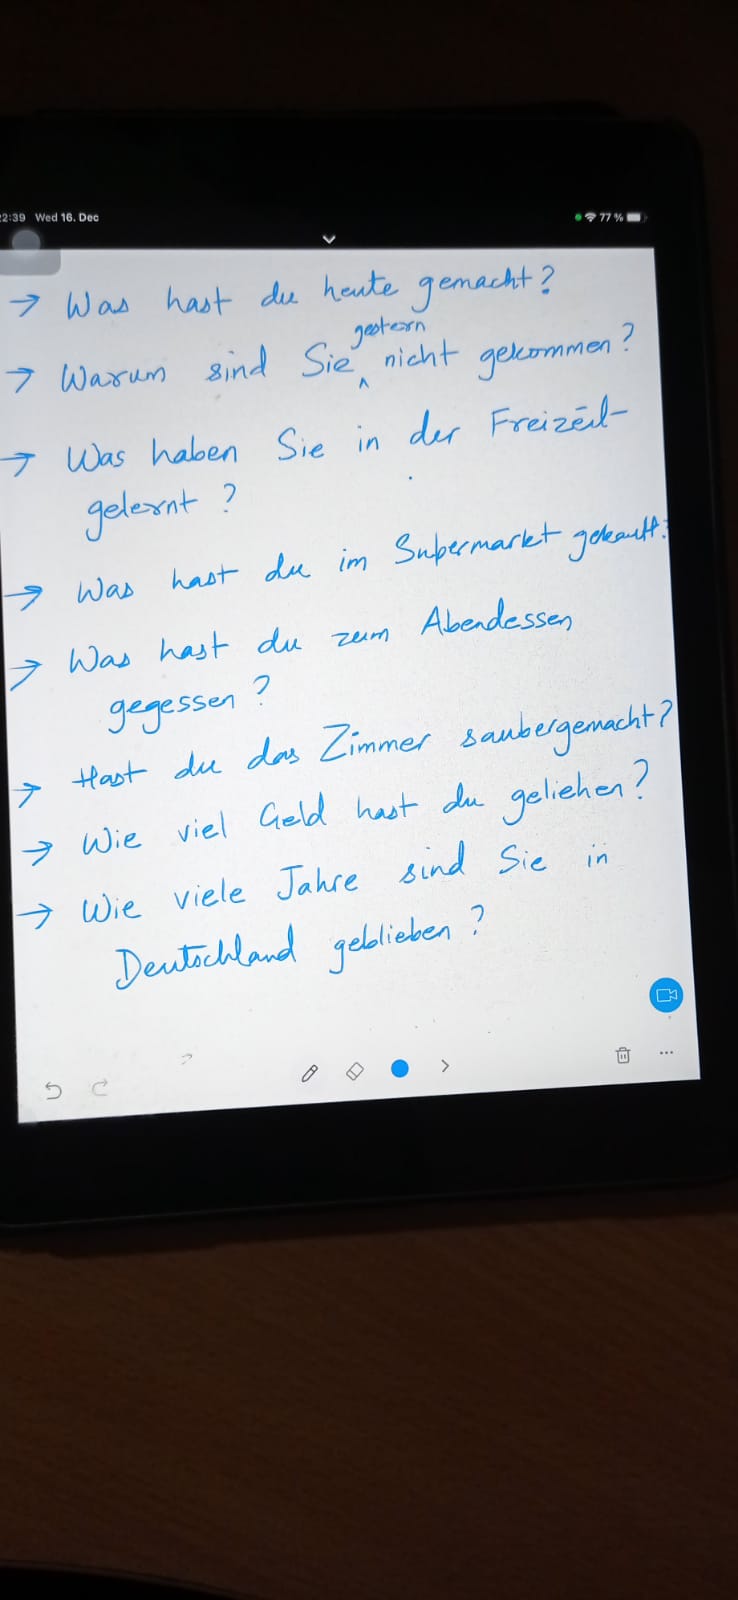 2:39 Wed 16. Dec
77 %
→ Was hast du heute gemacht?
gestern
→ Warum sind Sie ^ nicht gekommen?
→ Was haben Sie in der Freizeit
gelernt?
→ Was hast du im Supermarkt gekauft?
→ Was hast du zum Abendessen
gegessen?
→ Hast du das Zimmer saubergemacht?
→ Wie viel Geld hast du geliehen?
→ Wie viele Jahre sind Sie in
Deutschland geblieben?